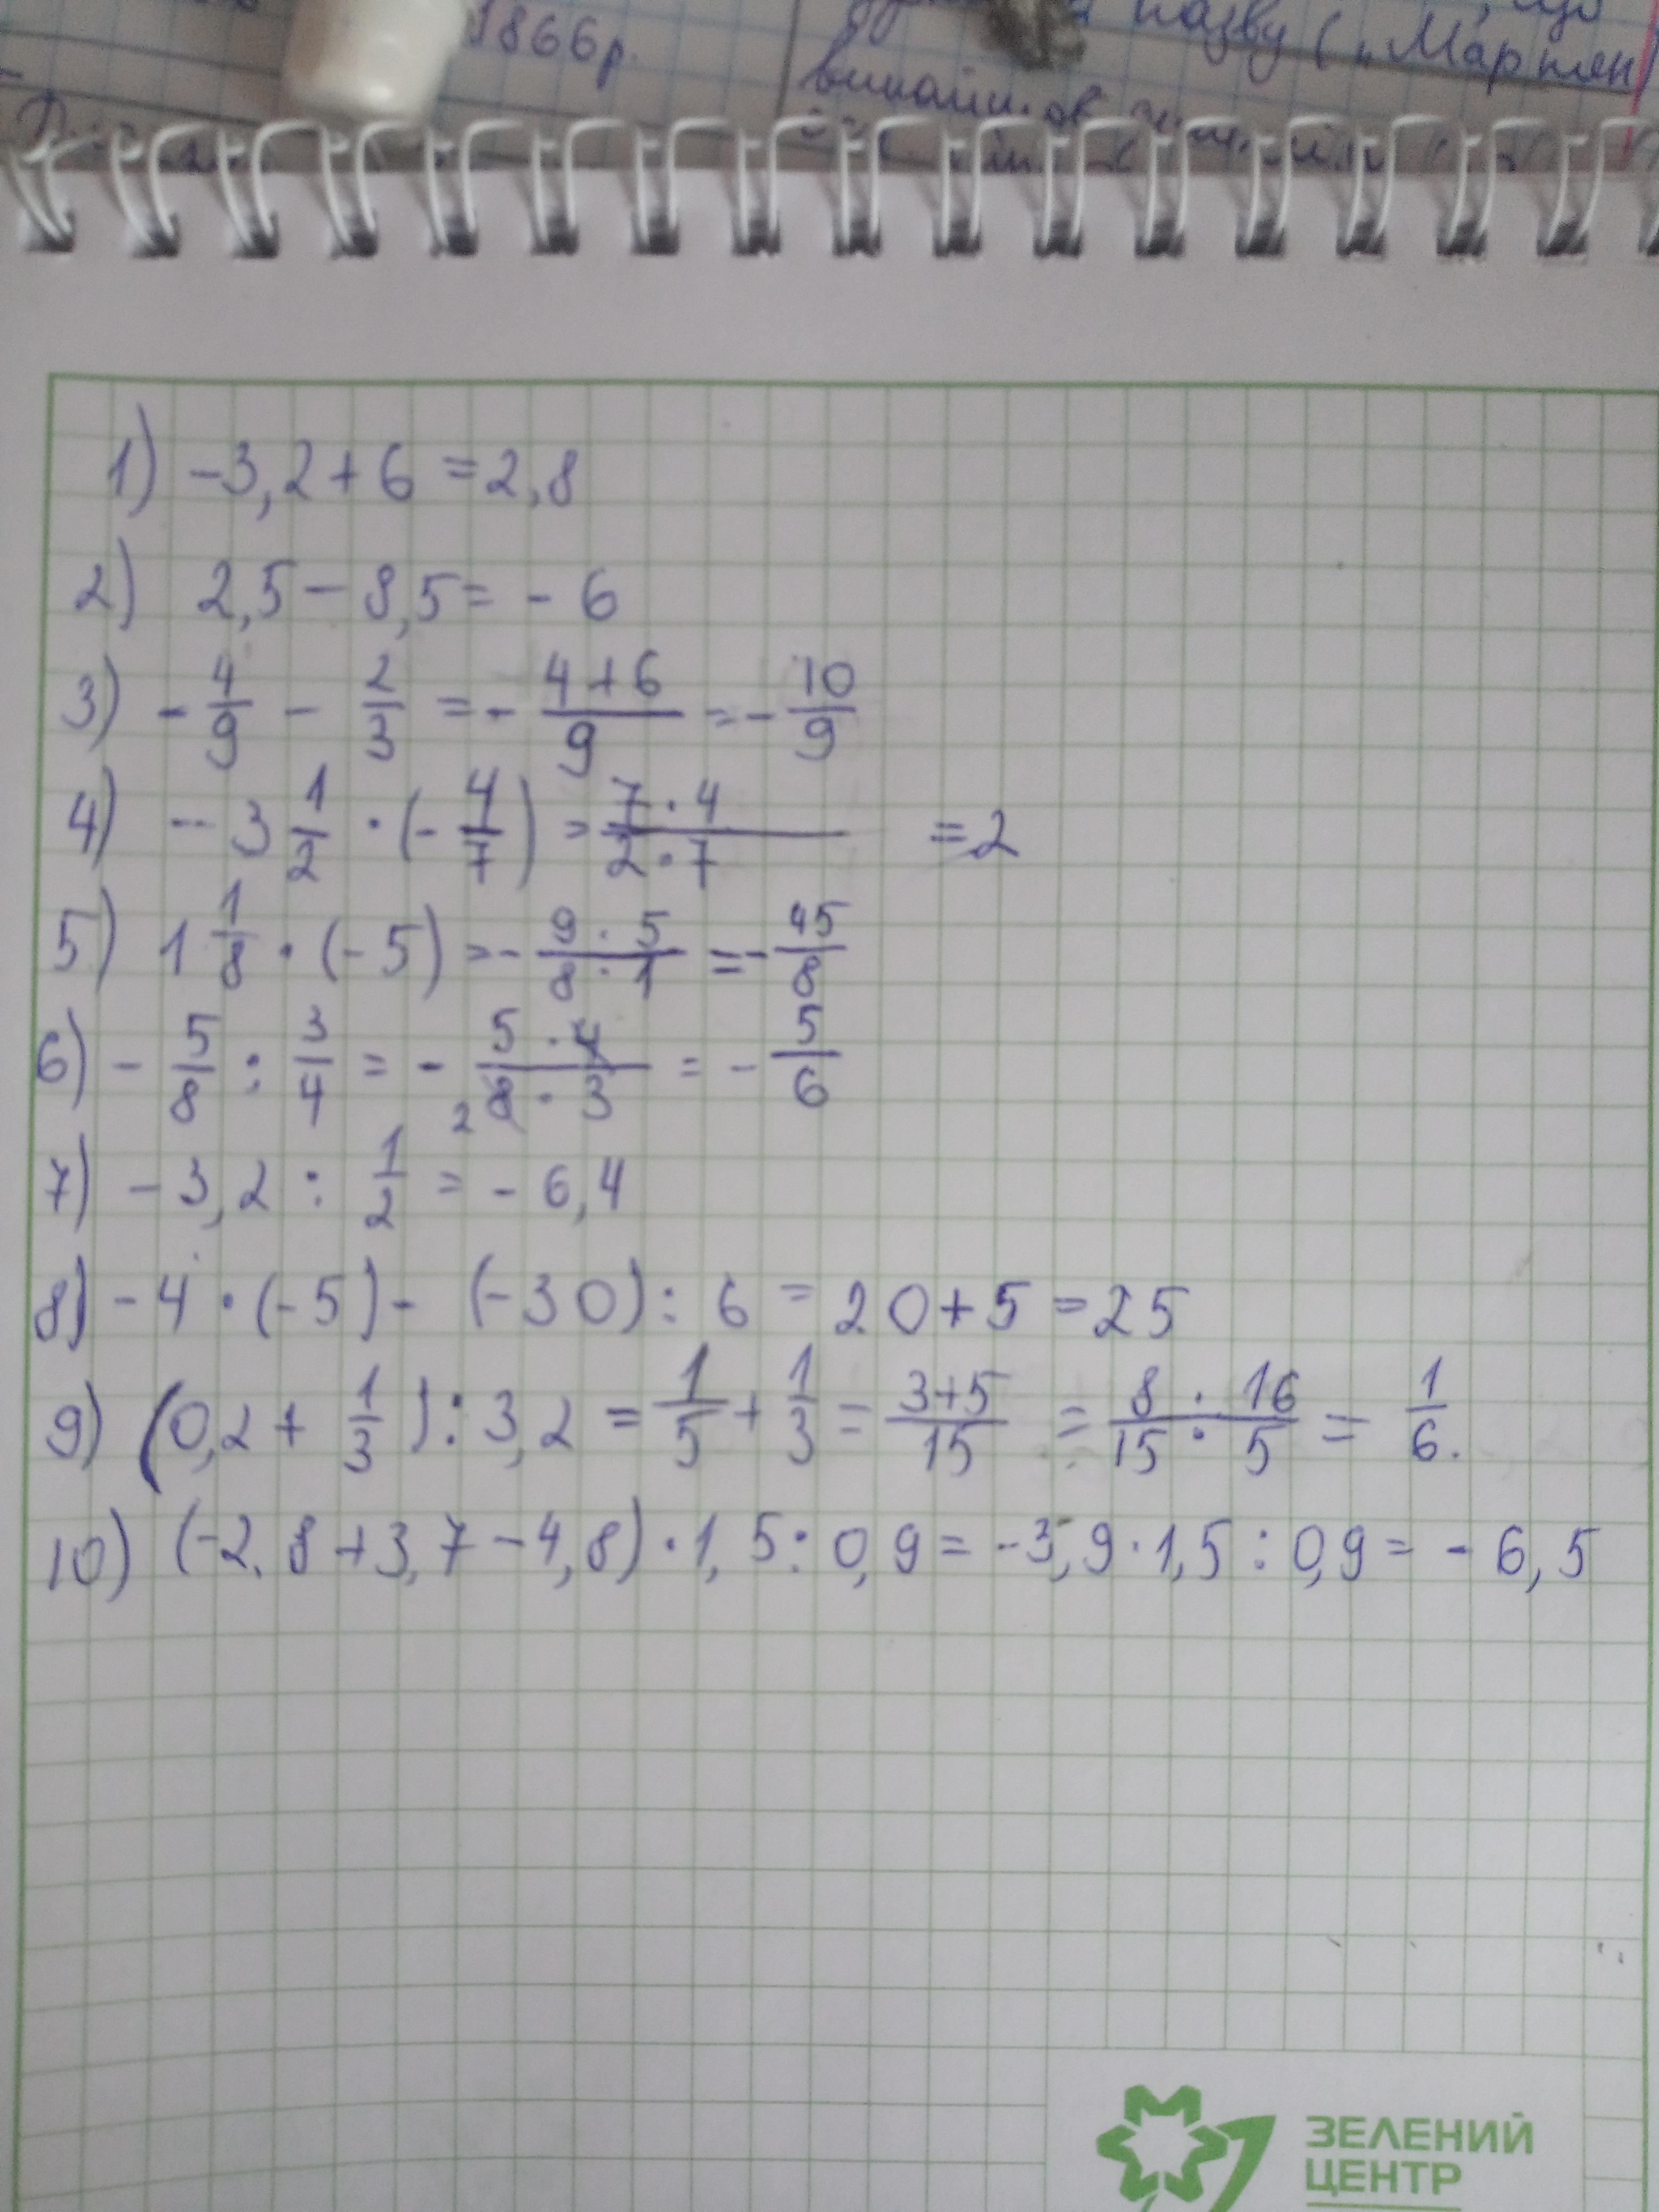 1866р.
назву („Мартен
1) -3,2 + 6 = 2,8
2) 2,5 - 8,5 = - 6
3) - 4/9 - 2/3 = - (4+6)/9 = - 10/9
4) - 3 1/2 · (- 4/7) = (7 · 4)/(2 · 7) = 2
5) 1 1/8 · (-5) = - (9 · 5)/(8 · 1) = - 45/8
6) - 5/8 : 3/4 = - (5 · 4)/(2 8 · 3) = - 5/6
7) - 3,2 : 1/2 = - 6,4
8) - 4 · (-5) - (-30) : 6 = 20 + 5 = 25
9) (0,2 + 1/3) : 3,2 = 1/5 + 1/3 = (3+5)/15 = (8 · 16)/(15 · 5) = 1/6.
10) (-2.8 + 3,7 - 4,8) · 1,5 : 0,9 = -3,9 · 1,5 : 0,9 = - 6,5
ЗЕЛЕНИЙ
ЦЕНТР